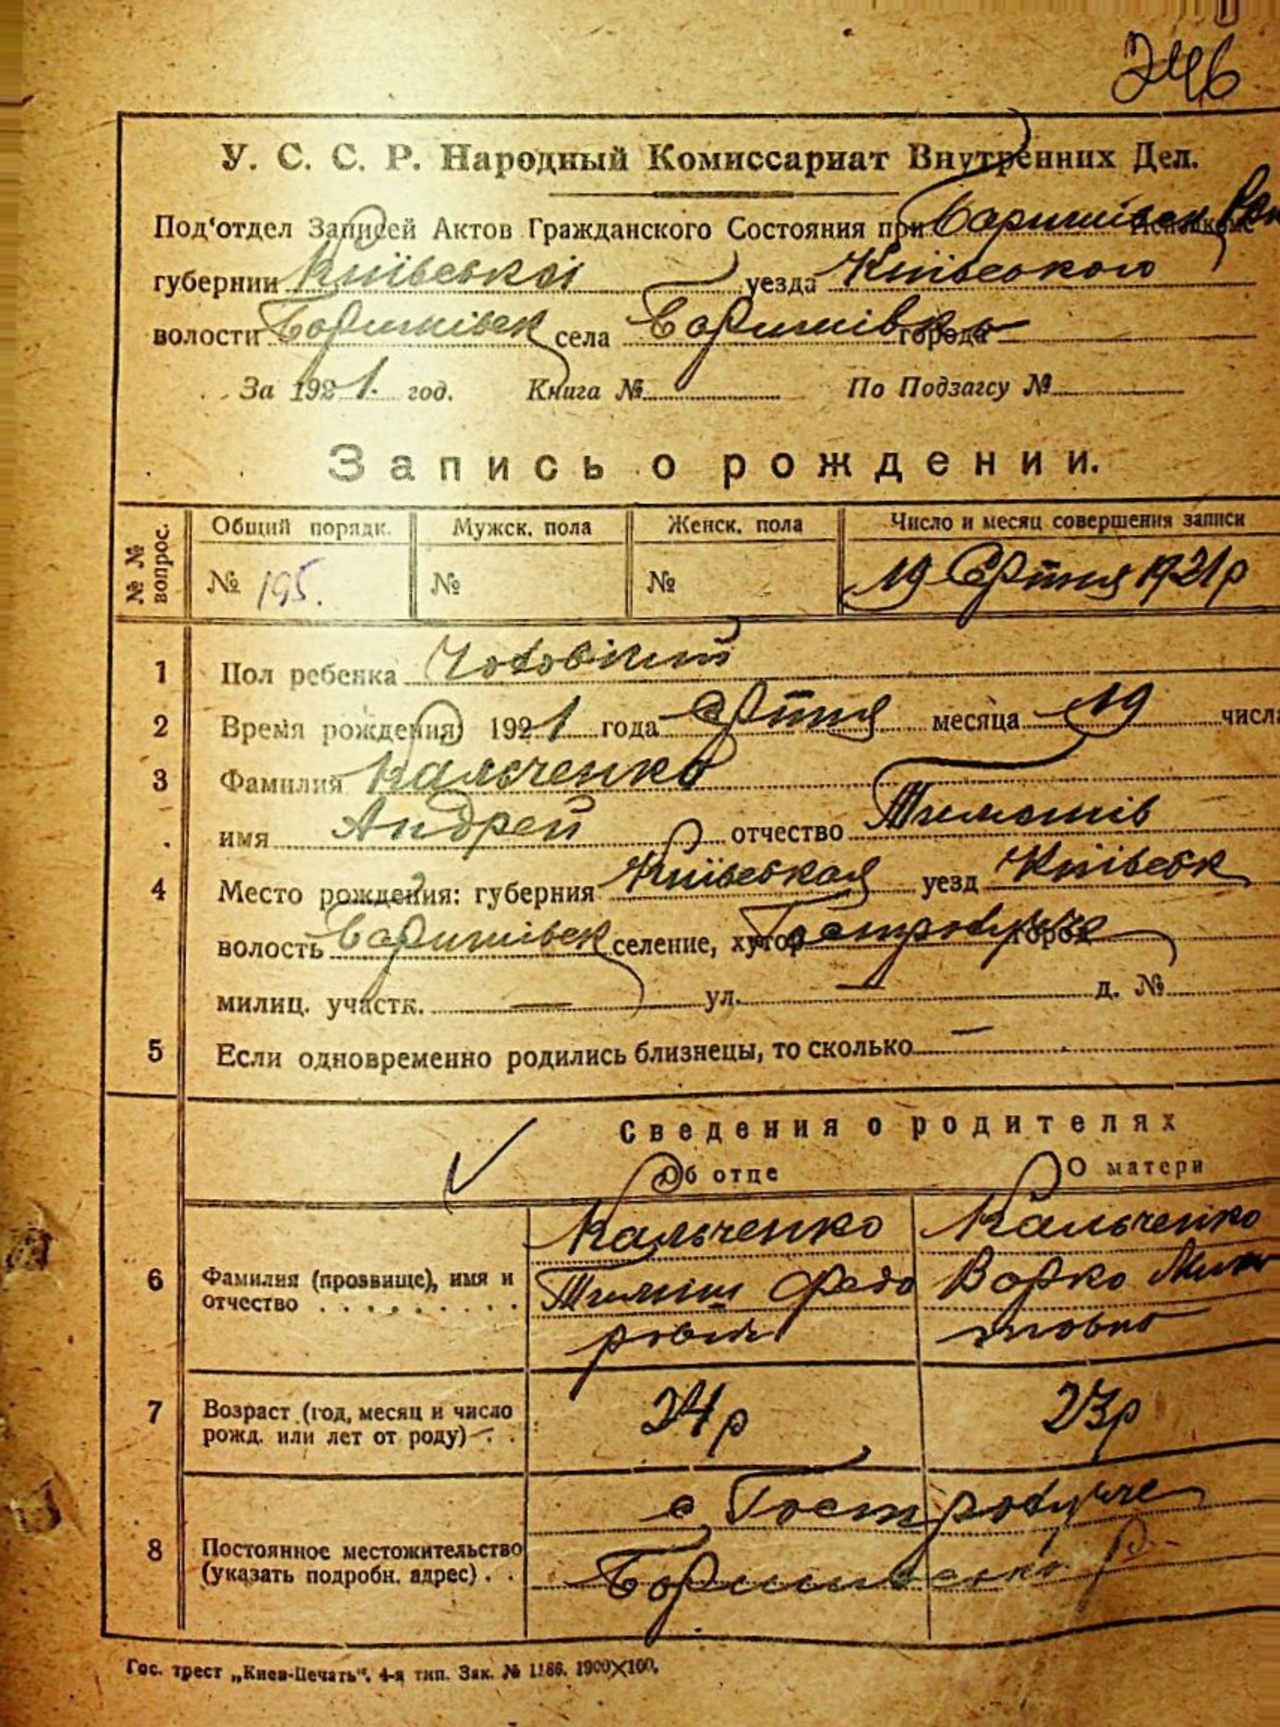 246
У. С. С. Р. Народный Комиссариат Внутренних Дел.
Под'отдел Записей Актов Гражданского Состояния при Баришівськ
губернии Київської уезда Київського
волости Баришівськ села Баришівка города —
За 1921. год. Книга № По Подзагсу №
Запись о рождении.
№ № вопрос. Общий порядк. Мужск. пола Женск. пола Число и месяц совершения записи
№ 195. № № 19 Серпня 1921 р
1 Пол ребенка Чоловічий
2 Время рождения: 1921 года Серпня месяца 19 числа
3 Фамилия Кальченко
имя Андрей отчество Тимошів
4 Место рождения: губерния Київськая уезд Київськ
волость Баришівськ селение, хутор Гостролуччє город
милиц. участк. — ул. — д. №
5 Если одновременно родились близнецы, то сколько —
Сведения о родителях
Об отце О матери
Кальченко Кальченко
6 Фамилия (прозвище), имя и Тимиш Федо Варка
отчество ровіч
7 Возраст (год, месяц и число 24 р 23 р
рожд. или лет от роду)
с Гостролуччє
8 Постоянное местожительство
(указать подробн. адрес)
Гос. трест „Киев-Печать“. 4-я тип. Зак. № 1186. 1900×100.